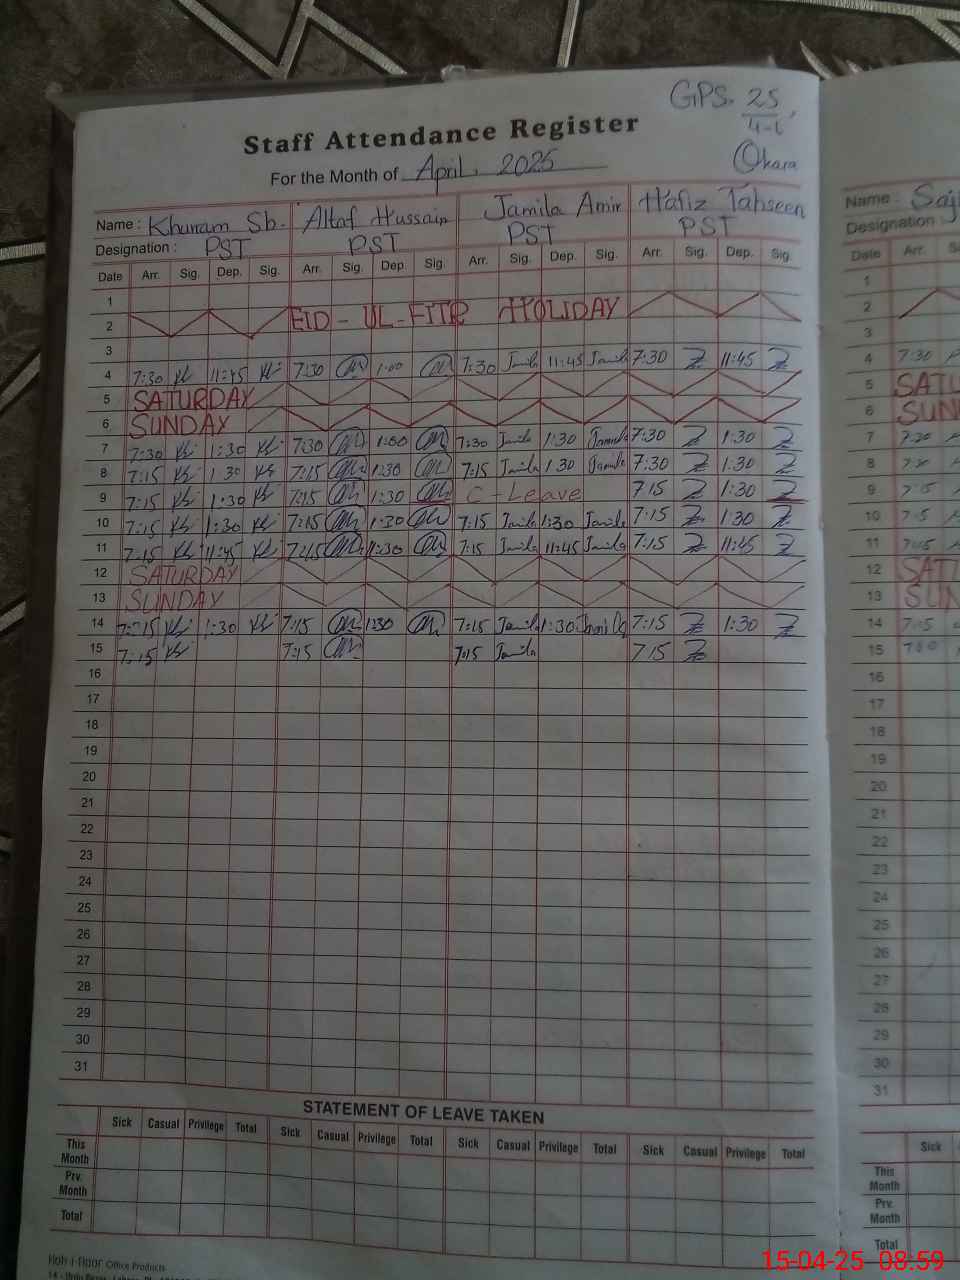 GPS. 25
4-L
Okara
Staff Attendance Register
For the Month of April, 2025
Name : Khurram Sb. Altaf Hussain Jamila Amir Hafiz Tahseen
Designation : PST PST PST PST
Date Arr. Sig. Dep. Sig. Arr. Sig. Dep. Sig. Arr. Sig. Dep. Sig. Arr. Sig. Dep. Sig.
1
2 EID-UL-FITR HOLIDAY
3
4 7:30 11:45 7:30 1:00 7:30 Jamila 11:45 Jamila 7:30 11:45
5 SATURDAY
6 SUNDAY
7 7:30 1:30 7:30 1:00 7:30 Jamila 1:30 Jamila 7:30 1:30
8 7:15 1:30 7:15 1:30 7:15 Jamila 1:30 Jamila 7:30 1:30
9 7:15 1:30 7:15 1:30 C-Leave 7:15 1:30
10 7:15 1:30 7:15 1:30 7:15 Jamila 1:30 Jamila 7:15 1:30
11 7:15 11:45 11:30 7:15 Jamila 11:45 Jamila 7:15 11:45
12 SATURDAY
13 SUNDAY
14 7:15 1:30 7:15 1:30 7:15 Jamila 1:30 Jamila 7:15 1:30
15 7:15 7:15 7:15 Jamila 7:15
16
17
18
19
20
21
22
23
24
25
26
27
28
29
30
31
STATEMENT OF LEAVE TAKEN
Sick Casual Privilege Total Sick Casual Privilege Total Sick Casual Privilege Total Sick Casual Privilege Total
This Month
Prv. Month
Total
Office Products
Name :
Designation
Date Arr.
1
2
3
4 7:30
5
6
7 7:30
8 7:30
9
10
11
12
13
14
15
16
17
18
19
20
21
22
23
24
25
26
27
28
29
30
31
Sick
This Month
Prv. Month
Total
15-04-25 08:59